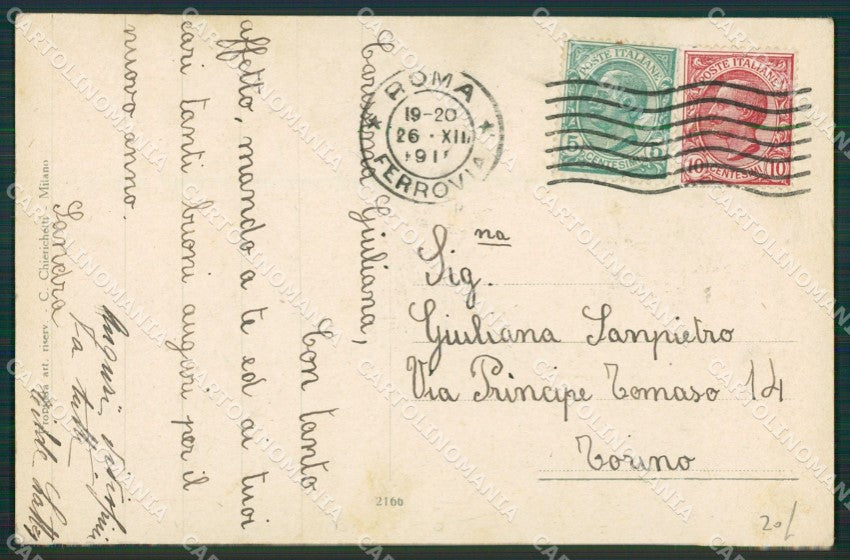 Carissima Giuliana,
Con tanto
affetto, mando a te ed ai tuoi
cari tanti buoni auguri per il
nuovo anno.
Sandra
Auguri
da tutti
ROMA
19-20
26 · XII
FERROVIA
POSTE ITALIANE
5 CENTESIMI 5
POSTE ITALIANE
10 CENTESIMI 10
Sig.na
Giuliana Sanpietro
Via Principe Tomaso 14
Torino
art. riserv. - C. Chierichetti - Milano
2166
20/
CARTOLINOMANIA